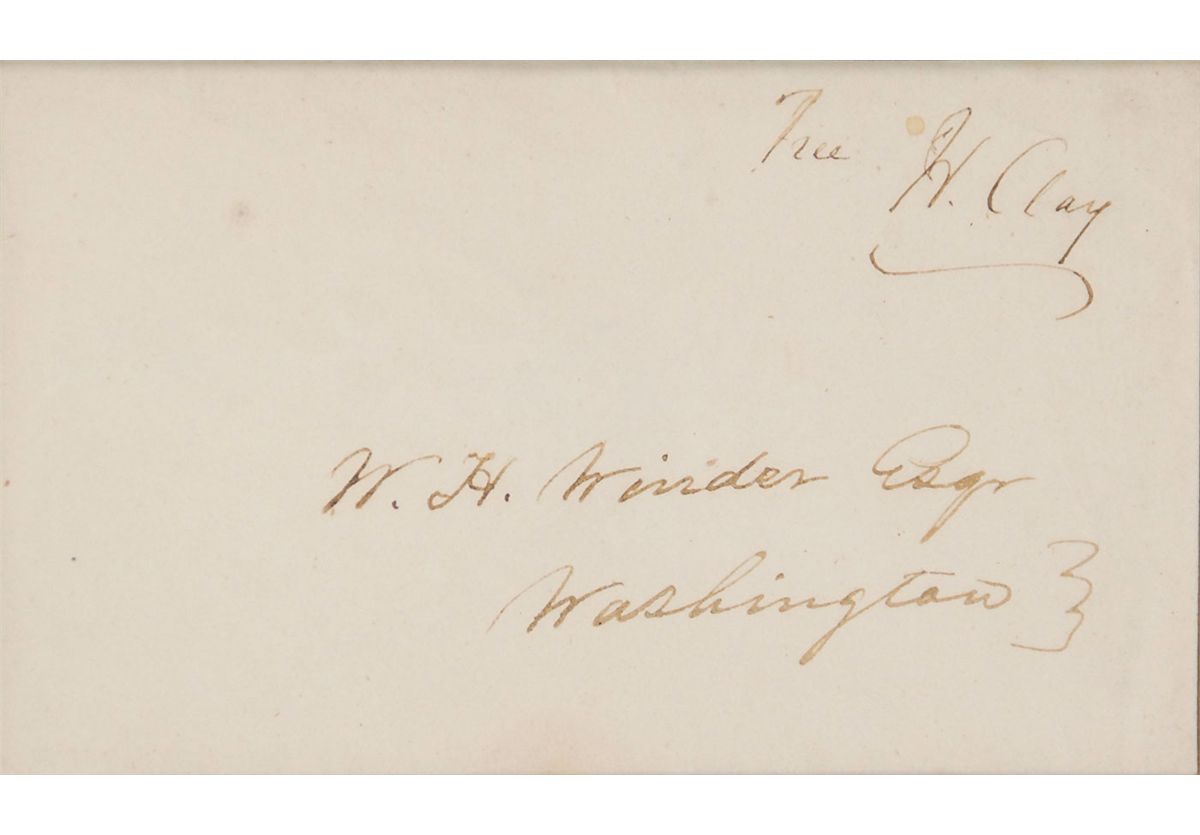 Free H. Clay
W. H. Winder Esqr
Washington